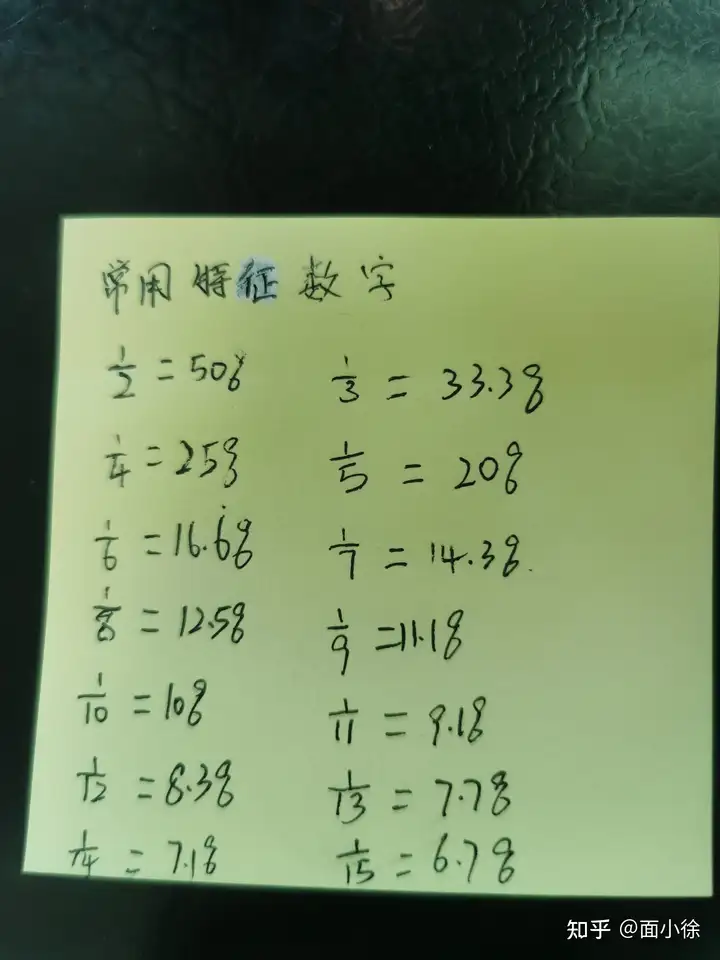 常用特征数字
1/2 = 50% 1/3 = 33.3%
1/4 = 25% 1/5 = 20%
1/6 = 16.6̇% 1/7 = 14.3%.
1/8 = 12.5% 1/9 = 11.1%
1/10 = 10% 1/11 = 9.1%
1/12 = 8.3% 1/13 = 7.7%
1/14 = 7.1% 1/15 = 6.7%
知乎 @面小徐